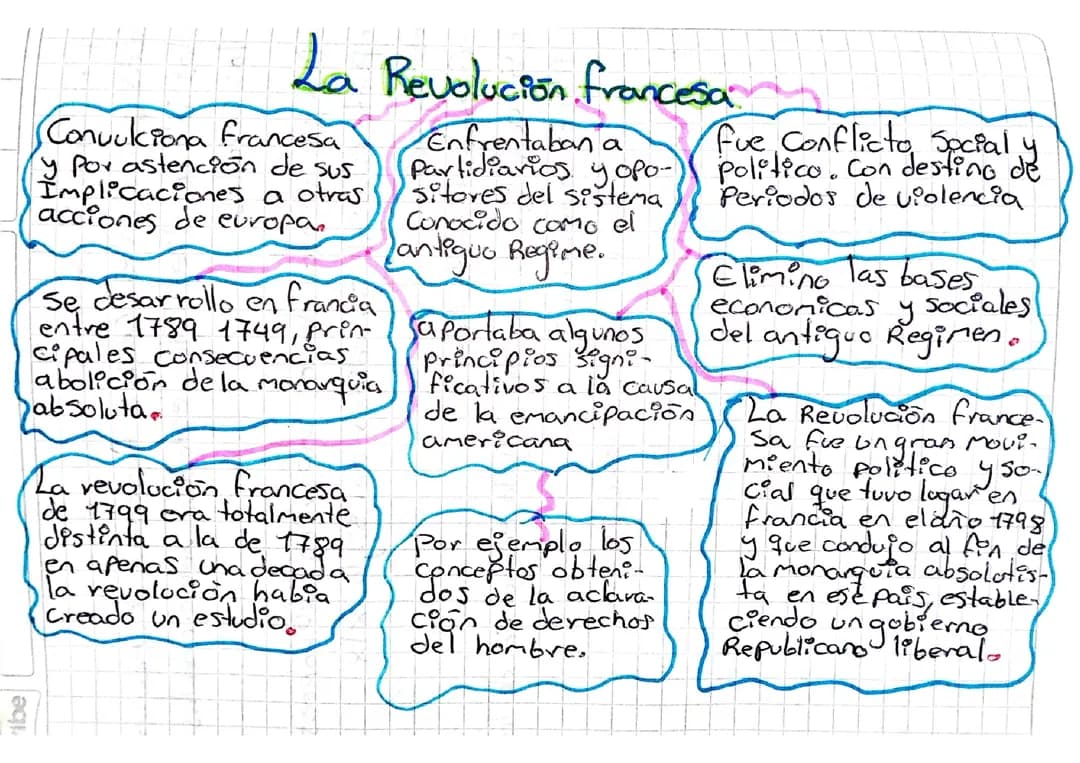 La Revolución francesa
Convulciona francesa
y por astención de sus
Implicaciones a otras
acciones de europa.
Enfrentaban a
Partidiarios y opo-
sitores del sistema
Conocido como el
antiguo Regime.
fue Conflicto Social y
político. Con destino de
Periodos de violencia
Se desarrollo en francia
entre 1789 1749, prin-
cipales consecuencias
abolición de la monarquia
absoluta.
aportaba algunos
principios signi-
ficativos a la causa
de la emancipación
americana
Elimino las bases
economicas y sociales
del antiguo Regimen.
La revolución francesa
de 1799 era totalmente
distinta a la de 1789
en apenas una decada
la revolución había
creado un estudio.
Por ejemplo los
conceptos obteni-
dos de la aclara-
ción de derechos
del hombre.
La Revolución france-
sa fue un gran movi-
miento político y so-
cial que tuvo lugar en
francia en el año 1798
y que condujo al fin de
la monarquía absolotis-
ta en ese país, estable-
ciendo un gobierno
Republicano liberal.
ribe